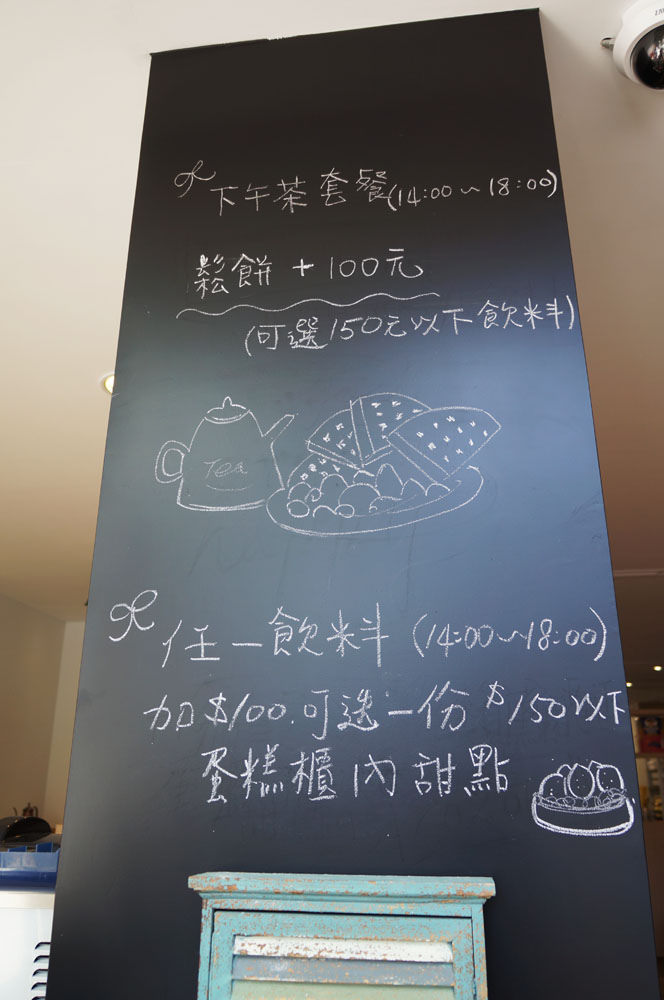 下午茶套餐(14:00~18:00)
鬆餅+100元
(可選150元以下飲料)
Tea
任一飲料(14:00~18:00)
加$100.可选一份$150以下
蛋糕櫃內甜點